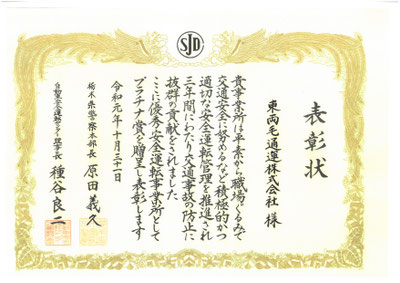 SJD
表彰状
東両毛通運株式会社 様
貴事業所は平素から職場ぐるみで
交通安全に努めるなど積極的かつ
適切な安全運転管理を推進され
三年間にわたり交通事故の防止に
抜群の貢献をされました
ここに優秀安全運転事業所として
プラチナ賞を贈呈し表彰します
令和元年十月三十一日
栃木県警察本部長 原田義久
自動車安全運転センター理事長 種谷良二